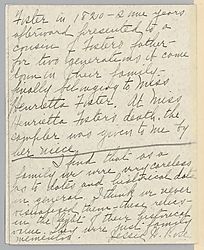 Foster in 1820 - & some years
afterward presented to a
cousin of Foster's father -
for two generations it come
down in their family -
finally belonging to Miss
Henrietta Foster. At Miss
Henrietta Foster's death, the
sampler was given to me by
her niece.
I find that as a
family we were very careless
as to dates and historical data
in general. I think we never
these relics -
in the light of their historical
value. They were just family
mementos.